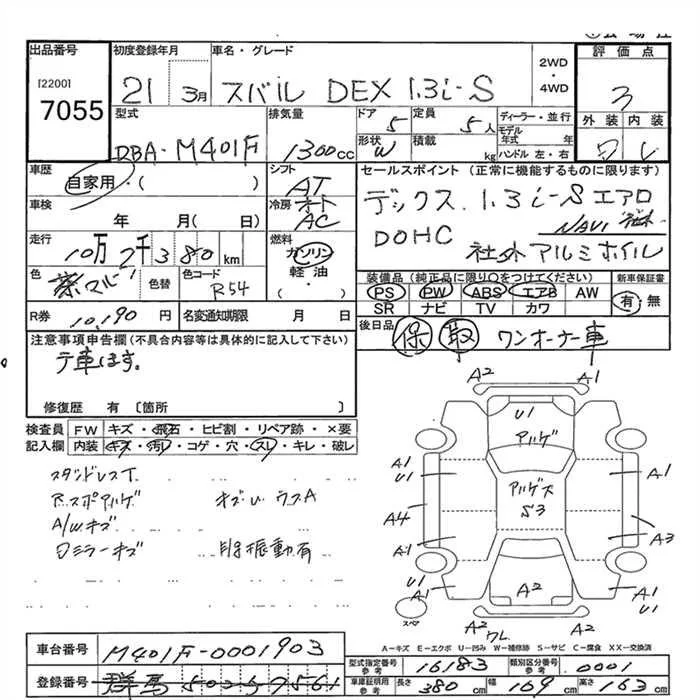 出品番号
[2200]
7055
初度登録年月
21 3月
車名・グレード
スバル DEX 1.3i-S
2WD
・
4WD
評価点
3
型式
DBA-M401F
排気量
1300cc
ドア
5
定員
5人
形状
W
積載
kg
ディーラー・並行
モデル年式 年
ハンドル 左・右
外装 内装
車歴
自家用・( )
シフト
AT
車検
年 月( )
冷房 オート
AC
セールスポイント(正常に機能するものに限ります)
デックス 1.3i-S エアロ
NAVI 社外
DOHC 社外アルミホイル
走行
10万2千380km
燃料
ガソリン
軽油
・( )
色
茶マルーン
色替
色コード
R54
装備品(純正品に限り○をつけてください)
PS PW ABS エアB AW
SR ナビ TV カワ
新車保証書
有・無
R券
10,190円
名変通知期限 月 日
後日品
保 取 ワンオーナー車
注意事項申告欄(不具合内容等は具体的に記入して下さい)
テ車はす。
修復歴 有〔箇所 〕
検査員記入欄
FW キズ・飛石・ヒビ割・リペア跡・×要
内装 キズ・汚レ・コゲ・穴・スレ・キレ・破レ
スタッドレスT
R.スポアルゲ
キズU ウスA
A/Wキズ
ミラーキズ
振動有
A2
A1
U1
アルゲ
A1
U1
A1
アルゲ大
S3
A4
A3
A1
A1
U1
A2
A1
U1
スペア
A2
ワレ
A2
A-キズ E-エクボ U-凹み W-補修跡 S-サビ C-腐食 XX-交換済
車台番号
M401F-0001903
登録番号
群馬502ラ9561
型式指定番号
参考
16183
類別区分番号
参考
0001
車庫証明用
参考
長さ
380cm
幅
169cm
高さ
163cm